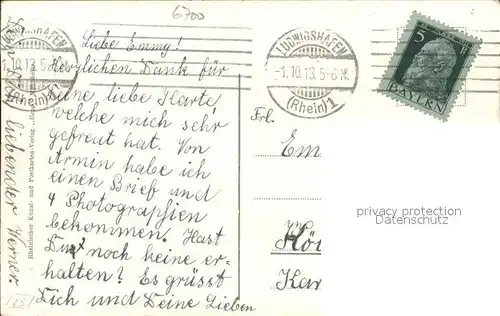 6700
Liebe Emmy!
Herzlichen Dank für
Deine liebe Karte,
welche mich sehr
gefreut hat. Von
Armin habe ich
einen Brief und
4 Photographien
bekommen. Hast
Du noch keine er-
halten? Es grüsst
Dich und Deine Lieben
liebender Werner.
Rheinischer Kunst- und Postkarten-Verlag
LUDWIGSHAFEN
-1.10.13. 5-6 N.
(Rhein) 1
LUDWIGSHAFEN
-1.10.13. 5-6 N.
(Rhein) 1
5
BAYERN
Frl.
Em
privacy protection
watermark
Kar